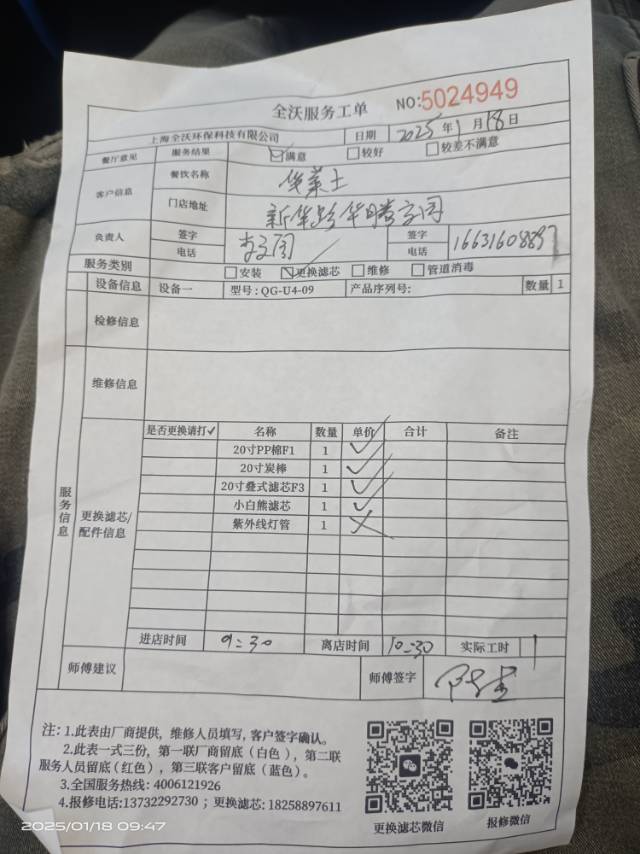 全沃服务工单 NO:5024949
上海全沃环保科技有限公司 日期 2025年1月18日
餐厅意见 服务结果 满意 较好 较差不满意
客户信息 餐饮名称 华莱士
门店地址 新华路华腾公园
负责人 签字 签字
电话 电话 16631608897
服务类别 安装 更换滤芯 维修 管道消毒
设备信息 设备一 型号:QG-U4-09 产品序列号: 数量 1
检修信息
维修信息
服务信息
更换滤芯/配件信息
是否更换请打✓ 名称 数量 单价 合计 备注
20寸PP棉F1 1 ✓
20寸炭棒 1 ✓
20寸叠式滤芯F3 1 ✓
小白熊滤芯 1 ✓
紫外线灯管 1 ×
进店时间 9:30 离店时间 10:30 实际工时 1
师傅建议 师傅签字
注: 1.此表由厂商提供，维修人员填写，客户签字确认。
2.此表一式三份，第一联厂商留底（白色），第二联
服务人员留底(红色)，第三联客户留底（蓝色）。
3.全国服务热线: 4006121926
4.报修电话:13732292730；更换滤芯: 18258897611
更换滤芯微信 报修微信
2025/01/18 09:47